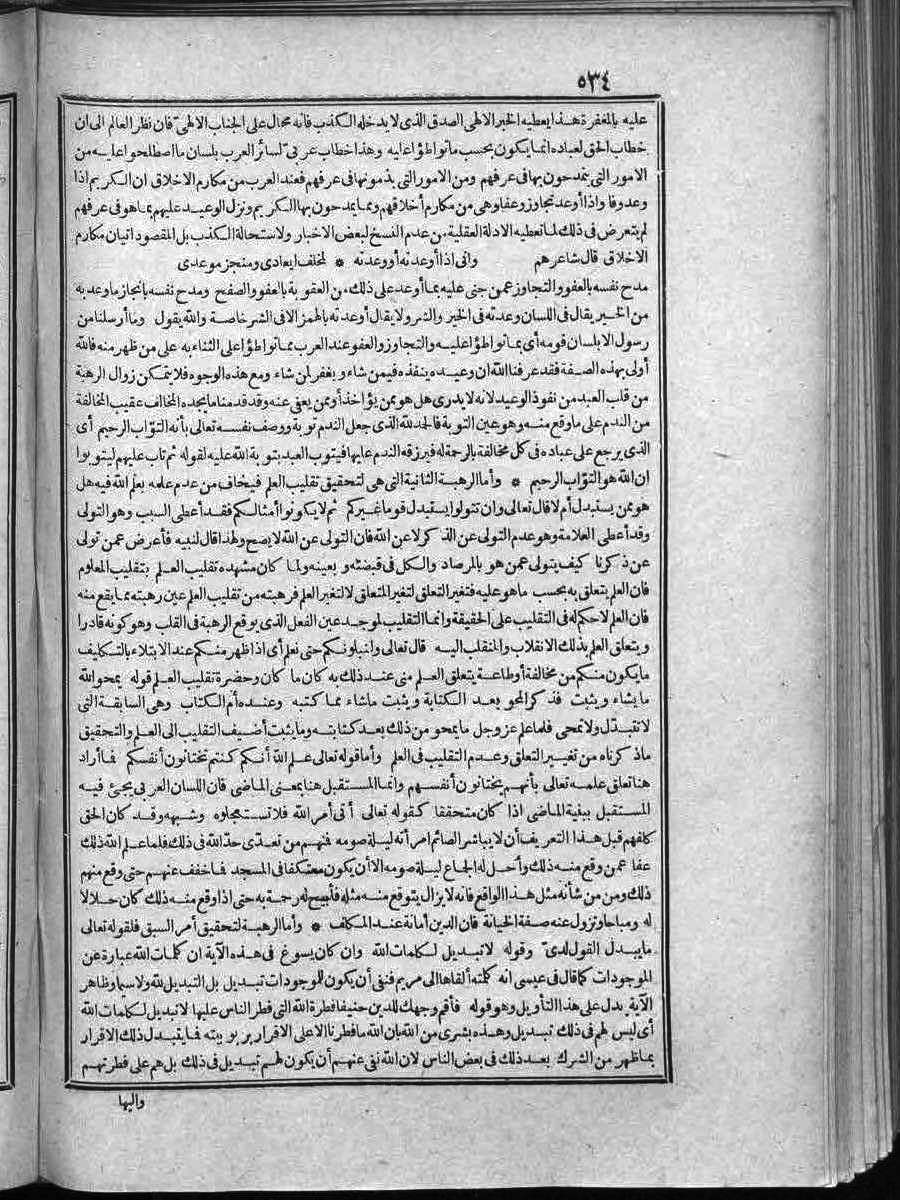 ٥٣٤
عليه بالمغفرة هذا يعطيه الخبر الالهى الصدق الذى لا يدخله الكذب فانه محال على الجناب الالهى فان نظر العالم الى ان
خطاب الحق لعباده انما يكون بحسب ما تواطؤا عليه وهذا خطاب عربى لسائر العرب بلسان ما اصطلحوا عليه من
الامور التى يتمدحون بها فى عرفهم ومن الامور التى يذمونها فى عرفهم فعند العرب من مكارم الاخلاق ان الكريم اذا
وعد وفا واذا أوعد تجاوز وعفا وهى من مكارم أخلاقهم ومما يمدحون بها الكريم ونزل الوعيد عليهم بما هو فى عرفهم
لم يتعرض فى ذلك لما تعطيه الادلة العقلية من عدم النسخ لبعض الاخبار ولاستحالة الكذب بل المقصود اتيان مكارم
الاخلاق قال شاعرهم وانى اذا أوعدته أو وعدته * لمخلف ايعادى ومنجز موعدى
مدح نفسه بالعفو والتجاوز عمن جنى عليه بما أوعد على ذلك من العقوبة بالعفو والصفح ومدح نفسه بانجاز ما وعد به
من الخير يقال فى اللسان وعدته فى الخير والشر ولا يقال أوعدته بالهمز الا فى الشر خاصة والله يقول وما أرسلنا من
رسول الا بلسان قومه أى بما تواطؤا عليه والتجاوز والعفو عند العرب مما تواطؤا على الثناء به على من ظهر منه فالله
أولى بهذه الصفة فقد عرفنا الله ان وعيده ينفذه فيمن شاء ويغفر لمن شاء ومع هذه الوجوه فلا يتمكن زوال الرهبة
من قلب العبد من نفوذ الوعيد لانه لا يدرى هل هو ممن يؤاخذ أو ممن يعفى عنه وقد قدمنا ما يجده المخالف عقيب المخالفة
من الندم على ما وقع منه وهو عين التوبة فالحمد لله الذى جعل الندم توبة ووصف نفسه تعالى بأنه التواب الرحيم أى
الذى يرجع على عباده فى كل مخالفة بالرحمة له فيرزقه الندم عليها فيتوب العبد بتوبة الله عليه لقوله ثم تاب عليهم ليتوبوا
ان الله هو التواب الرحيم * وأما الرهبة الثانية التى هى لتحقيق تقليب العلم فيخاف من عدم علمه بعلم الله فيه هل
هو ممن يستبدل أم لا قال تعالى وان تتولوا يستبدل قوما غيركم ثم لا يكونوا أمثالكم فقد أعطى السبب وهو التولى
وقد أعطى العلامة وهو عدم التولى عن الذكر لا عن الله فان التولى عن الله لا يصح ولهذا قال لنبيه فأعرض عمن تولى
عن ذكرنا كيف يتولى عمن هو بالمرصاد والكل فى قبضته وبعينه ولما كان مشهده تقليب العلم بتقليب المعلوم
فان العلم يتعلق به بحسب ما هو عليه فتغير التعلق لتغير المتعلق لا لتغير العلم فرهبته من تقليب العلم عين رهبته مما يقع منه
فان العلم لا حكم له فى التقليب على الحقيقة وانما التقليب لموجد عين الفعل الذى يوقع الرهبة فى القلب وهو كونه قادرا
ويتعلق العلم بذلك الانقلاب والمنقلب اليه قال تعالى ولنبلونكم حتى نعلم أى اذا ظهر منكم عند الابتلاء بالتكليف
ما يكون منكم من مخالفة أو طاعة يتعلق العلم منى عند ذلك به كان ما كان وحضرة تقليب العلم قوله يمحو الله
ما يشاء ويثبت فذكر المحو بعد الكتابة ويثبت ما شاء مما كتبه وعنده أم الكتاب وهى السابقة التى
لا تتبدل ولا تمحى فلما علم عز وجل ما يمحو من ذلك بعد كتابته وما يثبت أضيف التقليب الى العلم والتحقيق
ما ذكرناه من تغيير التعلق وعدم التقليب فى العلم وأما قوله تعالى علم الله أنكم كنتم تختانون أنفسكم فأراد
هنا تعلق علمه تعالى بأنهم يختانون أنفسهم وانما المستقبل هنا بمعنى الماضى فان اللسان العربى يجئ فيه
المستقبل ببنية الماضى اذا كان متحققا كقوله تعالى أتى أمر الله فلا تستعجلوه وشبهه وقد كان الحق
كلفهم قبل هذا التعريف أن لا يباشر الصائم امرأته ليلة صومه فمنهم من تعدى حد الله فى ذلك فلما علم الله ذلك
عفا عمن وقع منه ذلك وأحل له الجماع ليلة صومه الا أن يكون معتكفا فى المسجد فما خفف عنهم حتى وقع منهم
ذلك ومن من شأنه مثل هذا الواقع فانه لا يزال يتوقع منه مثله فأبيح له رحمة به حتى اذا وقع منه ذلك كان حلالا
له ومباحا وتزول عنه صفة الخيانة فان الدين أمانة عند المكلف * وأما الرهبة لتحقيق أمر السبق فلقوله تعالى
ما يبدل القول لدى وقوله لا تبديل لكلمات الله وان كان يسوغ فى هذه الآية ان كلمات الله عبارة عن
الموجودات كما قال فى عيسى انه كلمته ألقاها الى مريم فنفى أن يكون للموجودات تبديل بل التبديل لله ولا سيما وظاهر
الآية يدل على هذا التأويل وهو قوله فأقم وجهك للدين حنيفا فطرة الله التى فطر الناس عليها لا تبديل لكلمات الله
أى ليس لهم فى ذلك تبديل وهذه بشرى من الله بان الله ما فطرنا الا على الاقرار بربوبيته فما يتبدل ذلك الاقرار
بما ظهر من الشرك بعد ذلك فى بعض الناس لان الله نفى عنهم أن يكون لهم تبديل فى ذلك بل هم على فطرتهم
واليها